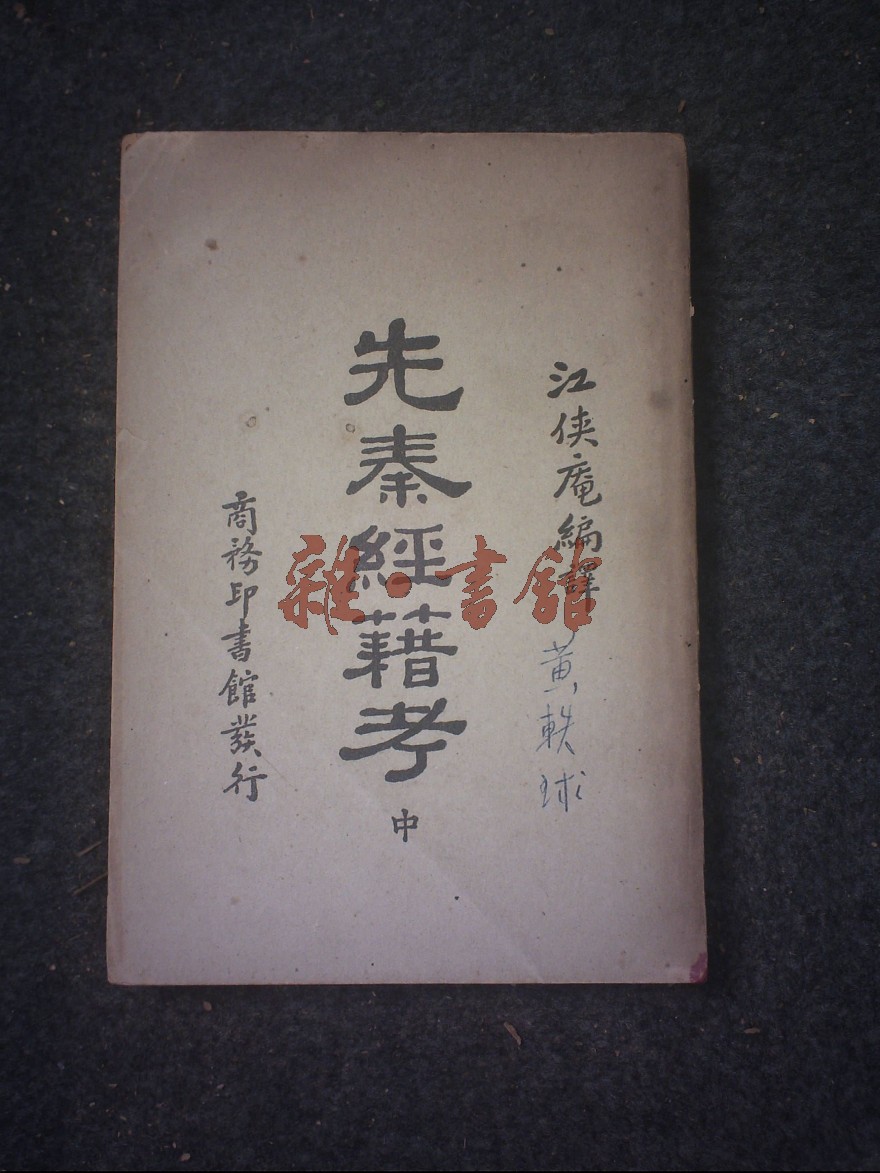 江俠庵編譯
黃軼球
先秦經籍考
中
商務印書館發行
雜·書館